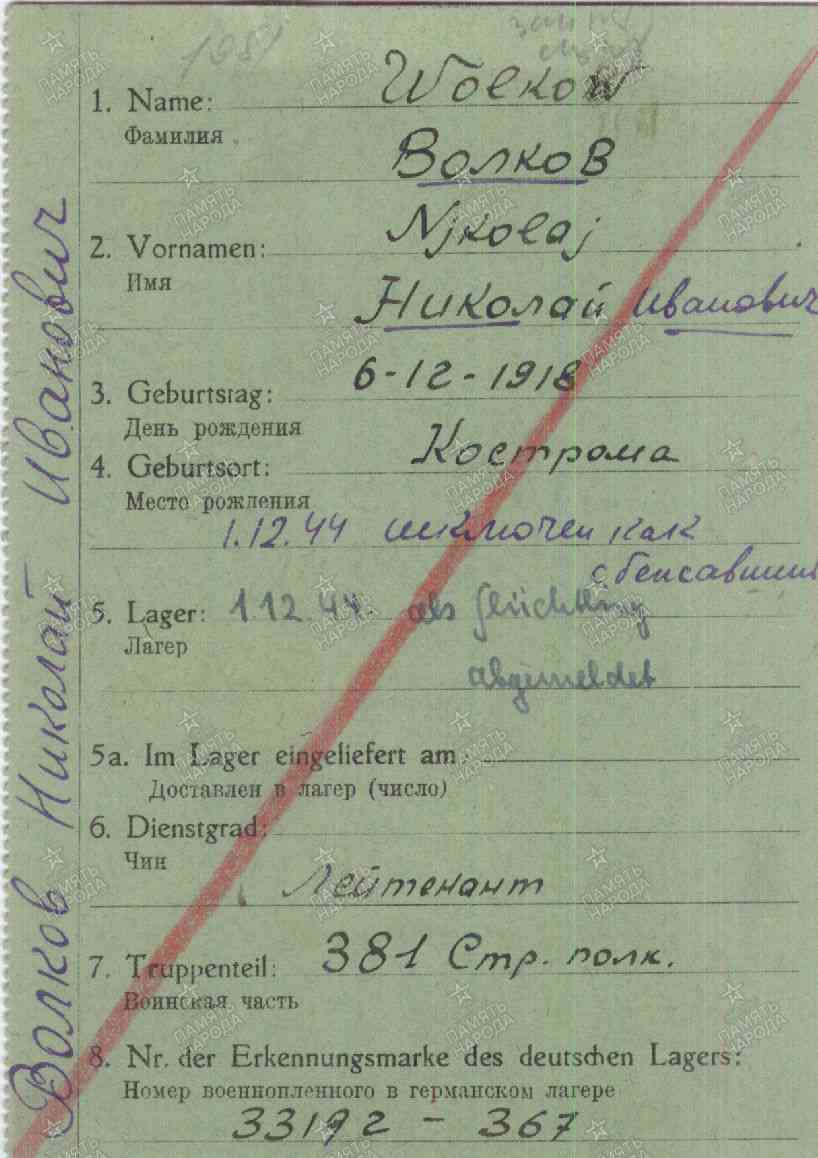 1. Name: Wolkow
Фамилия
Волков
2. Vornamen: Njkolaj
Имя
Николай Иванович
3. Geburtstag: 6-12-1918
День рождения
4. Geburtsort: Кострома
Место рождения
1.12.44 исключен как
сбежавший
5. Lager: 1.12.44. als Flüchtling
Лагер
abgemeldet
5a. Im Lager eingeliefert am:
Доставлен в лагер (число)
6. Dienstgrad:
Чин
Лейтенант
7. Truppenteil: 381 Стр. полк.
Воинская часть
8. Nr. der Erkennungsmarke des deutschen Lagers:
Номер военнопленного в германском лагере
33192 - 367
Волков Николай Иванович
ПАМЯТЬ
НАРОДА